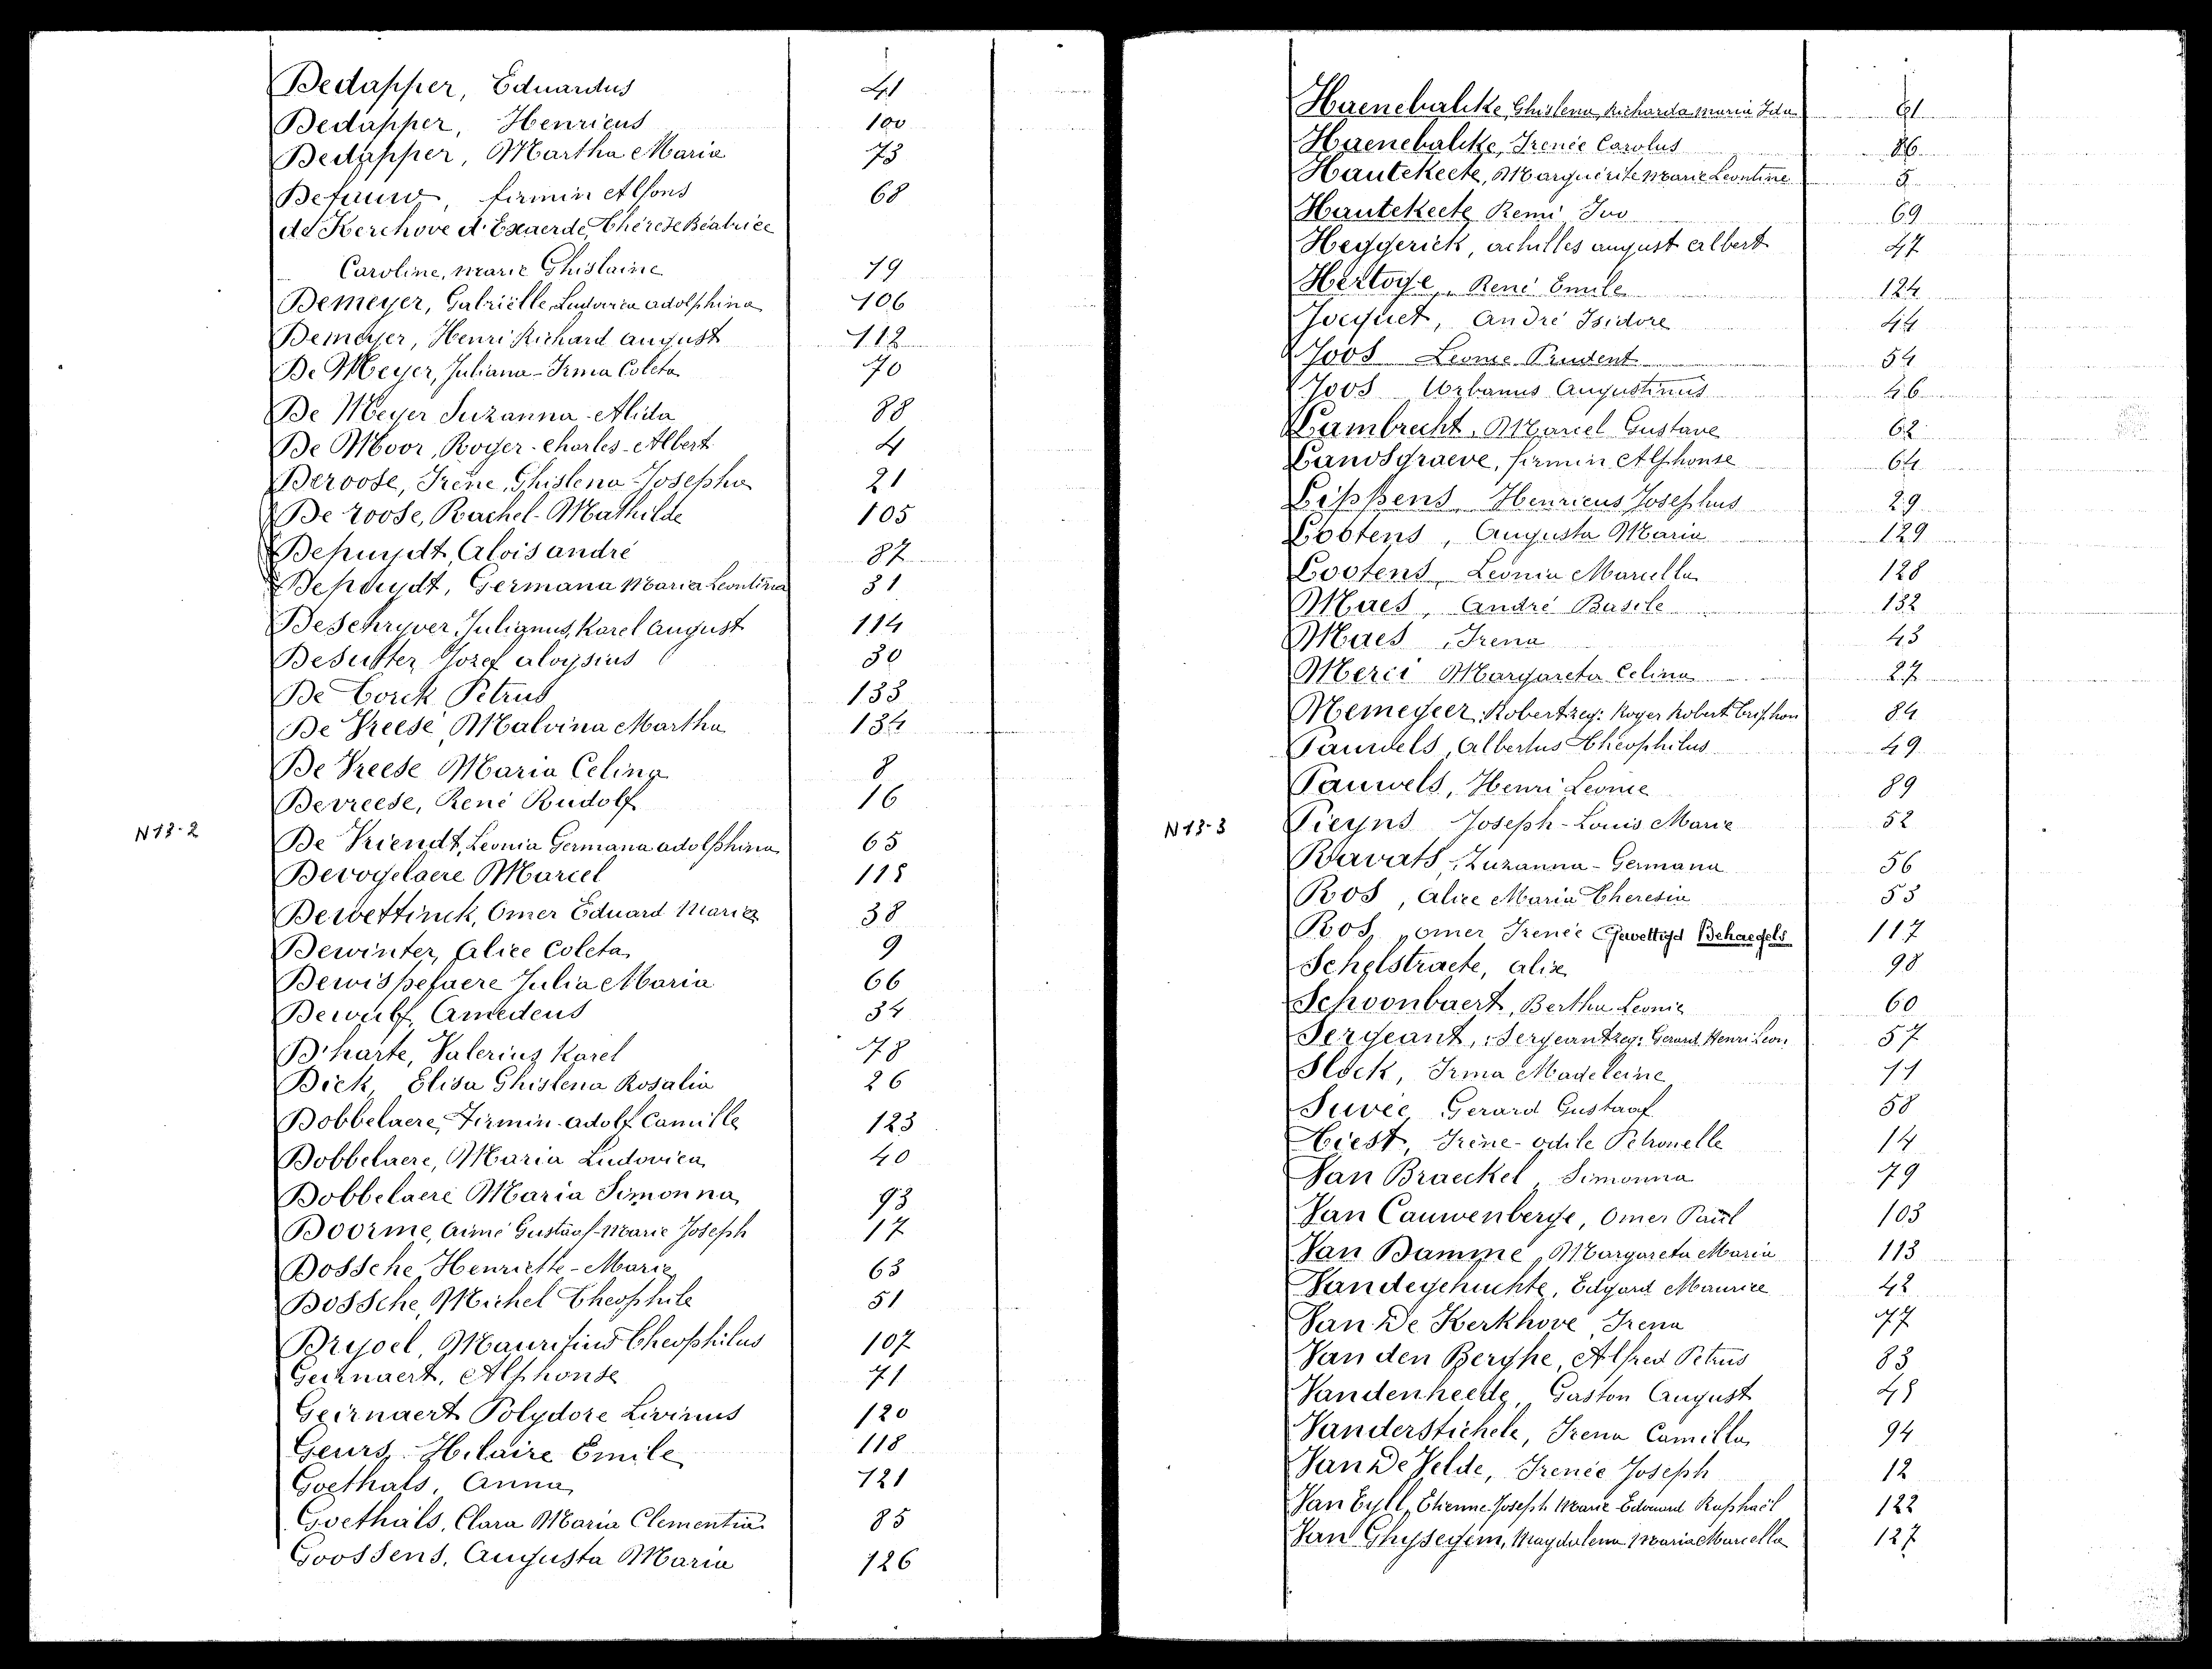 Dedapper, Eduardus 41
Dedapper, Henricus 100
Dedapper, Martha Maria 73
Defauw, firmin Alfons 68
de Kerchove d'Exaerde, Thérèse Béatrice
Caroline, Marie Ghislaine 19
Demeyer, Gabriëlle, Ludovica adolphina 106
Demeyer, Henri Richard august 112
De Meyer, Juliana-Irma Coleta 70
De Meyer Suzanna-Alida 88
De Moor, Roger-Charles-Albert 4
Deroose, Irène, Ghislena-Josepha 21
De roose, Rachel-Mathilde 105
Depuydt, Aloïs andré 87
Depuydt, Germana Maria Leontina 31
Deschryver, Julianus, Karel august 114
Desutter Jozef aloysius 30
De Torck Petrus 133
De Vreese, Malvina Martha 134
De Vreese Maria Celina 8
Devreese, René Rudolf 16
N 13-2
De Vriendt, Leonia Germana adolphina 65
Devogelaere Marcel 115
Dewettinck, Omer Eduard Marie 38
Dewinter, Alice Coleta 9
Dewispelaere Julia Maria 66
Dewulf, Amedeus 34
D'harte, Valerius Karel 78
Dick, Elisa Ghislena Rosalia 26
Dobbelaere, Firmin-adolf Camille 123
Dobbelaere, Maria Ludovica 40
Dobbelaere Maria Simonna 93
Doorme, Aimé Gustaaf-Marie Joseph 17
Dossche, Henriette-Marie 63
Dossche, Michel Theophile 51
Dryoel, Mauritius Theophilus 107
Geirnaert, Alphonse 71
Geirnaert Polydore Livinus 120
Geurs, Hilaire Emile 118
Goethals, Anna 121
Goethals, Clara Maria Clementina 85
Goossens, Augusta Maria 126
Haenebalcke, Ghislena, Richarda Maria Ida 61
Haenebalcke, Irenée Carolus 86
Hautekeete, Marguerite Marie Leontine 5
Hautekeete Remi Ivo 69
Heggerick, achilles august albert 47
Hertoge, René Emile 124
Jocquet, André Isidore 44
Joos Leonie Prudent 54
Joos Urbanus Augustinus 46
Lambrecht, Marcel Gustave 62
Landsgraeve, firmin Alphonse 64
Lippens, Henricus Josephus 29
Lootens, Augusta Maria 129
Lootens, Leonia Marcella 128
Maes, André Basile 132
Maes, Irena 43
Merci Margareta Celina 27
Nemegeer, Robert zeg: Roger Robert Crisphon 84
Pauwels, Albertus Theophilus 49
Pauwels, Henri Leonie 89
N 13-3
Pieyns Joseph-Louis Marie 52
Ravats, Zuzanna-Germana 56
Ros, Alice Maria Theresia 53
Ros, omer Irenée Gewettigd Dehaegels 117
Schelstraete, Alix 98
Schoonbaert, Bertha Leonie 60
Sergeant, Sergeant zeg: Gerard Henri Leon 57
Slock, Irma Madeleine 11
Suvée Gerard Gustaaf 58
Tiest, Irène-odile Petronelle 14
Van Braeckel, Simonna 79
Van Cauwenberge, Omer Paul 103
Van Damme, Margareta Maria 113
Vandegehuchte, Edgard Maurice 42
Van De Kerkhove Irena 77
Van den Berghe, Alfred Petrus 83
Vandenheede, Gaston August 48
Vanderstichele, Irena Camilla 94
Van De Velde, Irenée Joseph 12
Van Eyll, Etienne Joseph Marie Edouard Raphaël 122
Van Ghyseghem, Magdalena Maria Marcella 127